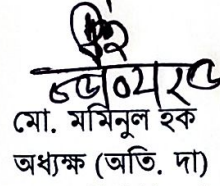 মো. মমিনুল হক
অধ্যক্ষ (অতি. দা)